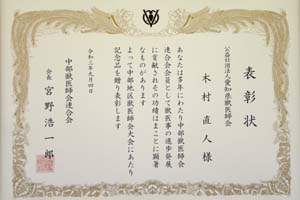 表彰状
公益社団法人愛知県獣医師会
木村直人様
あなたは多年にわたり中部獣医師会
連合会会員として獣医事の進歩発展
に貢献されその功績はまことに顕著
なものがあります
よって中部地区獣医師会大会にあたり
記念品を贈り表彰します
令和三年九月四日
中部獣医師会連合会
会長 宮野浩一郎